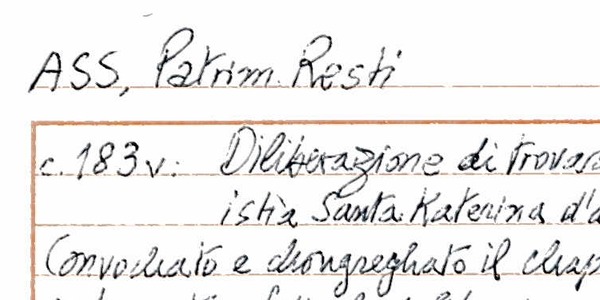 ASS, Patrim. Resti
c. 183v: Diliberazione di trovar
istia Santa Katerina d'a
Convochato e chongreghato il chap